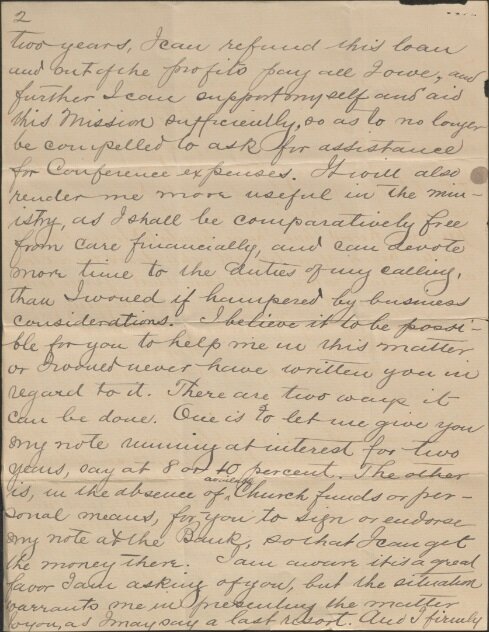 2
two years, I can refund this loan
and out of the profits pay all I owe, and
further I can support myself and aid
this Mission sufficiently, so as to no longer
be compelled to ask for assistance
for Conference expenses. It will also
render me more useful in the min-
istry, as I shall be comparatively free
from care financially, and can devote
more time to the duties of my calling,
than I would if hampered by business
considerations. I believe it to be possi-
ble for you to help me in this matter
or I would never have written you in
regard to it. There are two ways it
can be done. One is to let me give you
my note running at interest for two
years, say at 8 or 10 percent. The other
is, in the absence of Church funds or per-
sonal means, for you to sign or endorse
my note at the Bank, so that I can get
the money there. I am aware it is a great
favor I am asking of you, but the situation
warrants me in presenting the matter
to you, as I may say a last resort. And I firmly